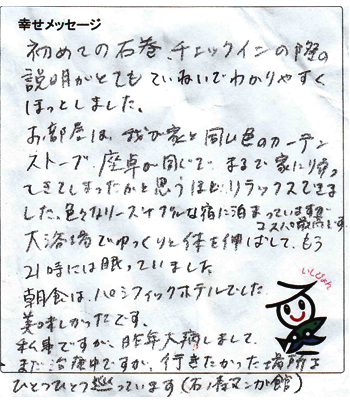 幸せメッセージ
初めての石巻、チェックインの際の
説明がとてもていねいでわかりやすく
ほっとしました。
お部屋は、我が家と同じ色のカーテン
ストーブ、座卓が同じで、まるで家に帰っ
てきてしまったかと思うほどリラックスできま
した、色々なリーズナブルな宿に泊まっていますが
コスパ最高です。
大浴場でゆっくりと体を伸ばして、もう
21時には眠っていました
朝食は、パシフィックホテルでした
美味しかったです。
私事ですが、昨年大病しまして、
まだ治療中ですが、行きたかった場所を
ひとつひとつ巡っています(石ノ森マンガ館)